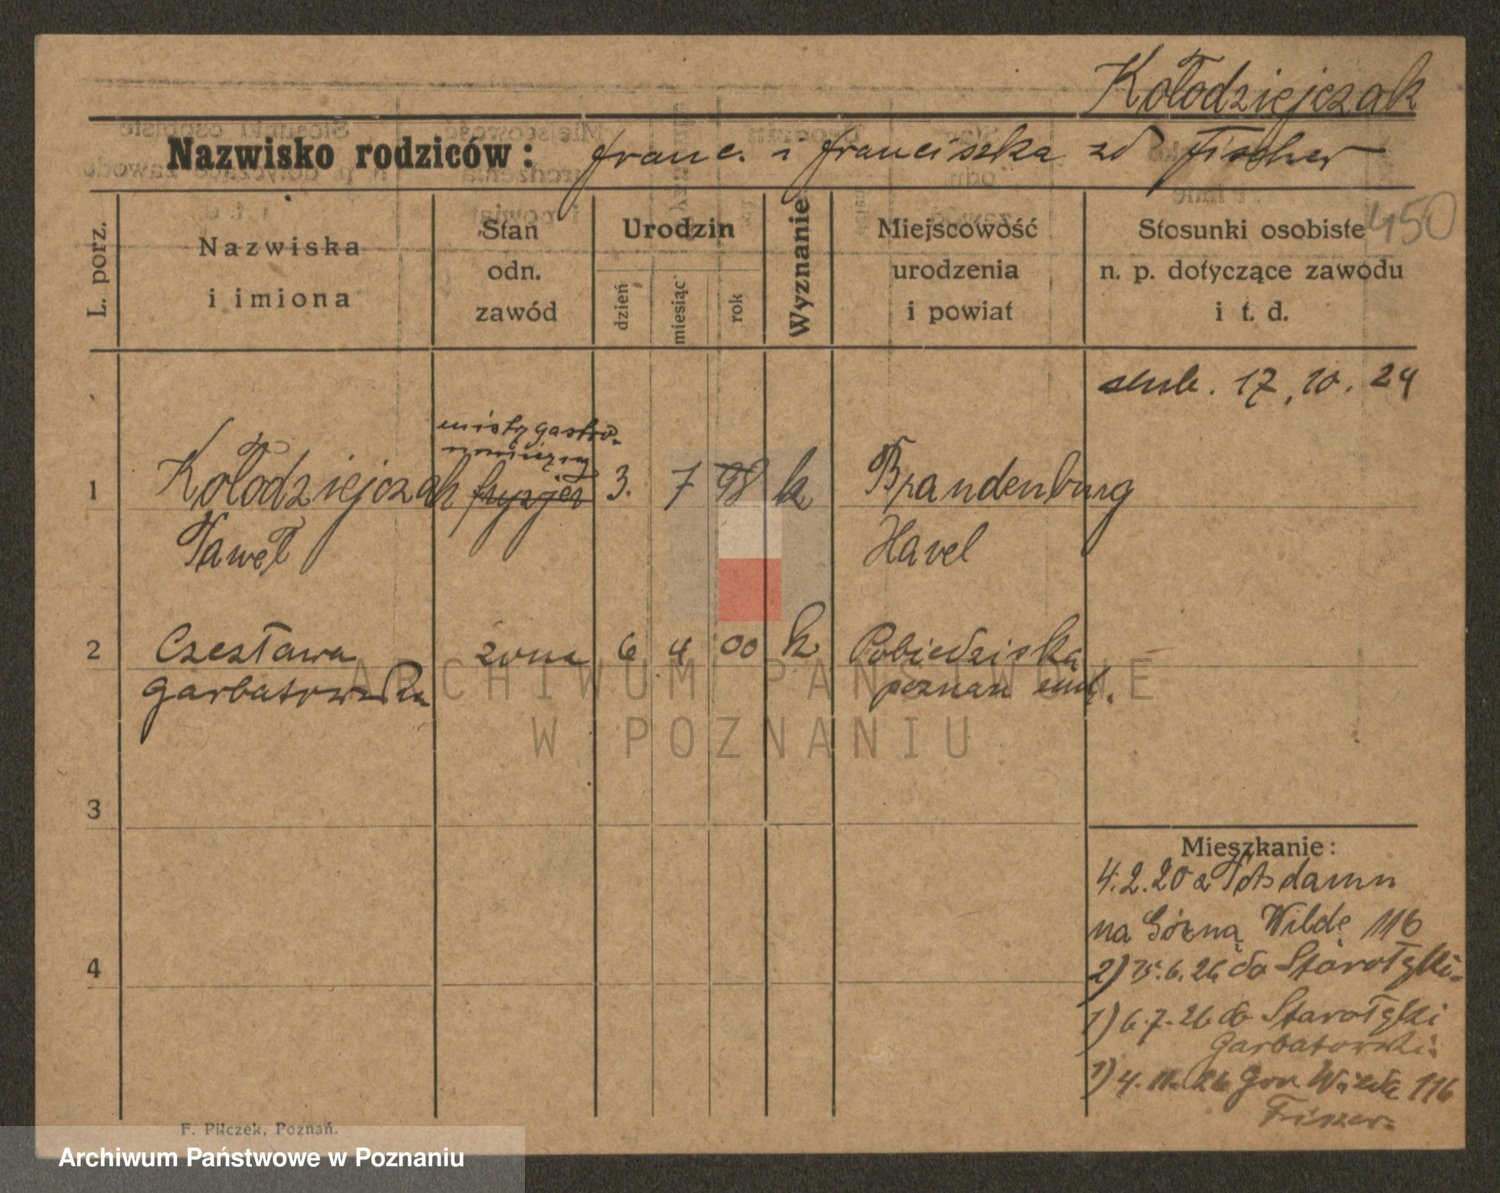 Kołodziejczak
Nazwisko rodziców: Franc. i Franciszka zd Fischer
450
L. porz.
Nazwiska
i imiona
Stan
odn.
zawód
Urodzin
dzień
miesiąc
rok
Wyznanie
Miejscowość
urodzenia
i powiat
Stosunki osobiste
n. p. dotyczące zawodu
i t. d.
ślub. 17.10.24
mistrz gastro-
nomiczny
1 Kołodziejczak fryzjer 3. 7 98 k Brandenburg
Paweł Havel
2 Czesława żona 6 4 00 k Pobiedziska
Garbatowska Poznań
3
4
Mieszkanie:
4.2.20 z Potsdamu
na Górną Wildę 116
2) 25.6.26 do Starołęki
1) 6.7.26 do Starołęki
Garbatowski
1) 4.11.26 Gór. Wilda 116
Fiszer
F. Pilczek, Poznań.
ARCHIWUM PAŃSTWOWE
W POZNANIU
Archiwum Państwowe w Poznaniu